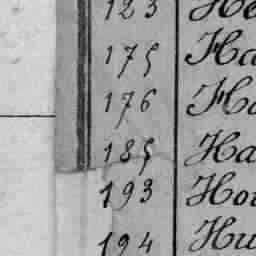 123 He
175 Ha
176 Ha
185 Ha
193 Hou
194 Hu